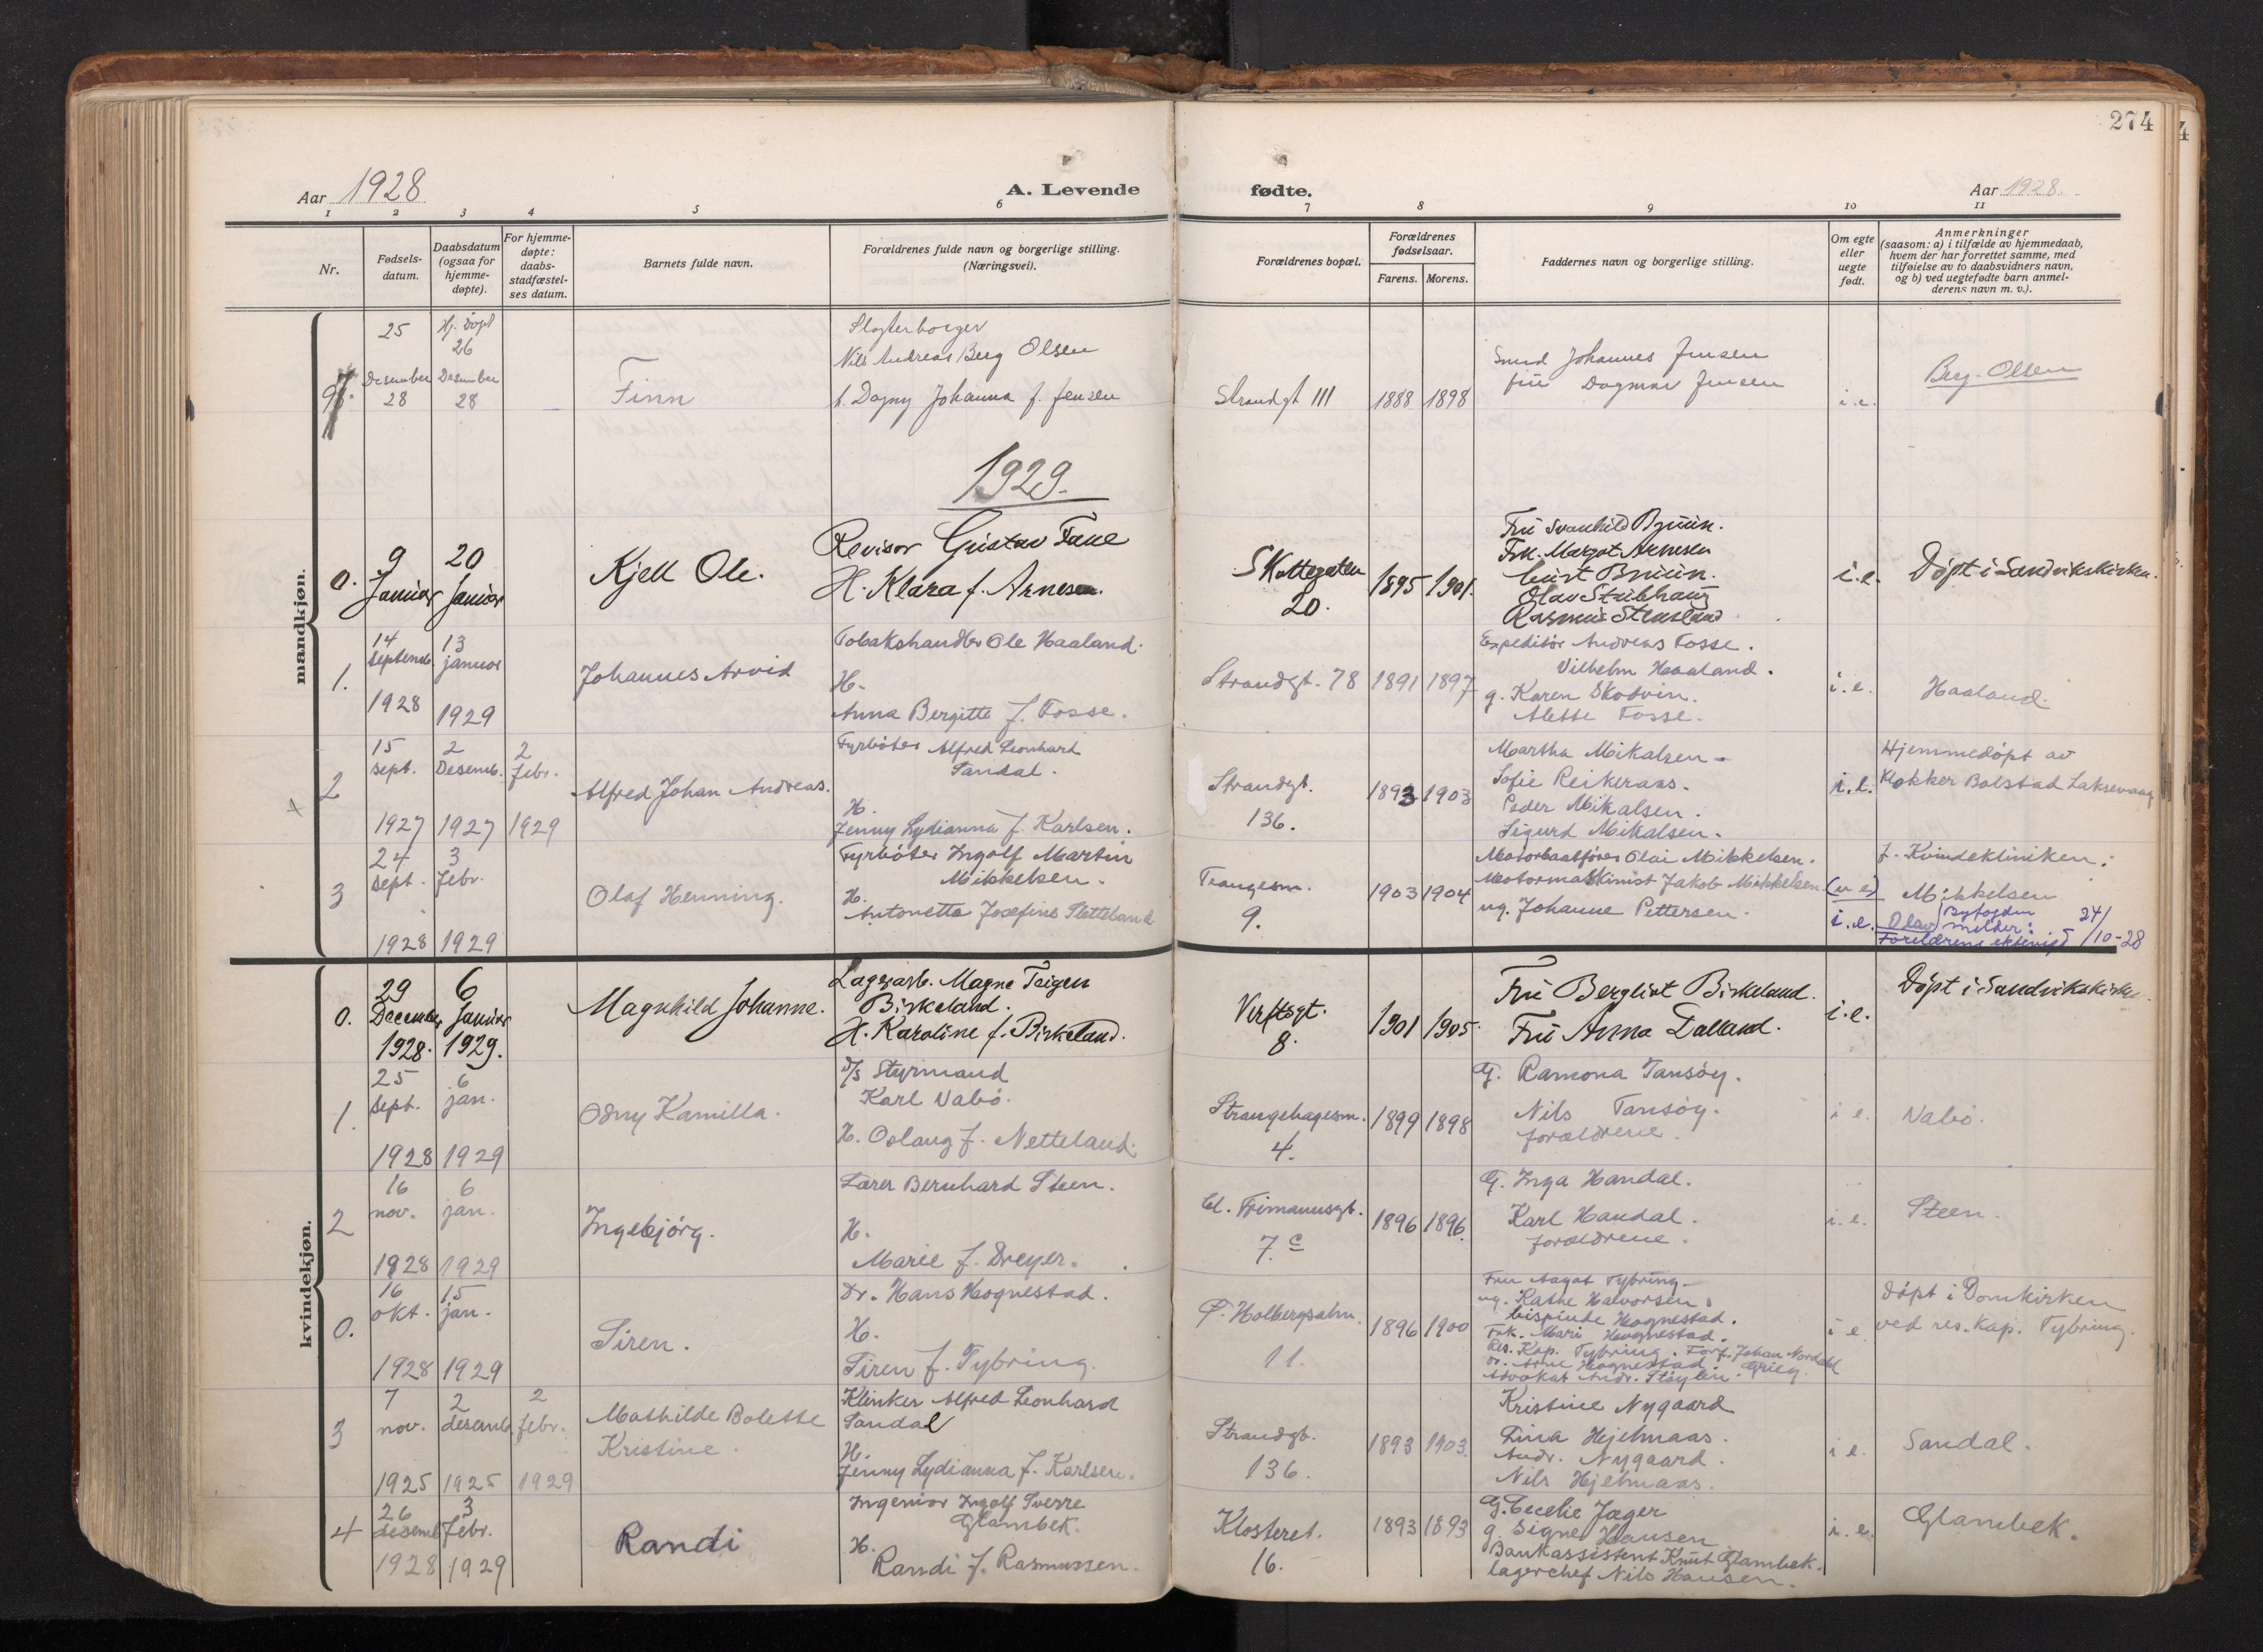 274
Aar 1928
A. Levende
fødte.
Aar 1928.
1 2 3 4 5 6 7 8 9 10 11
Nr.
Fødsels-
datum.
Daabsdatum
(ogsaa for
hjemme-
døpte).
For hjemme-
døpte:
daabs-
stadfæstel-
ses datum.
Barnets fulde navn.
Forældrenes fulde navn og borgerlige stilling.
(Næringsvei).
Forældrenes bopæl.
Forældrenes
fødselsaar.
Farens. Morens.
Faddernes navn og borgerlige stilling.
Om egte
eller
uegte
født.
Anmerkninger
(saasom: a) i tilfælde av hjemmedaab,
hvem der har forrettet samme, med
tilføielse av to daabsvidners navn,
og b) ved uegtefødte barn anmel-
derens navn m. v.).
mandkjøn.
25
Desember
28
Hj. døpt
26
Desember
28
Finn
Nils Andreas Berg Olsen
h. Dagny Johanna f. Jensen
Strandgt 111
1888 1898
Smed Johannes Jensen
frue Dagmar Jensen
i.e.
Berg-Olsen
1929.
0.
9
Januar
20
Januar
Kjell Ole.
Revisor Gustav Fane
H. Klara f. Arnesen.
Skottegaten
20.
1895 1901.
Fru Svanhild Bruun.
Frk. Margot Arnesen
Curt Bruun.
Olav Stubhaug
Rasmus Stensland
i.e.
Døpt i Sandvikskirken.
1.
14
septemb.
1928
13
januar
1929
Johannes Arvid
Tobakshandler Ole Haaland.
H.
Anna Bergitte f. Fosse.
Strandgt. 78
1891 1897
Expeditør Andreas Fosse.
Vilhelm Haaland.
g. Karen Skodvin.
Alette Fosse.
i.e.
Haaland.
2
15
sept.
1927
2
Desemb.
1927
2
febr.
1929
Alfred Johan Andreas.
Fyrbøter Alfred Leonhard
Sandal.
H.
Jenny Lydianna f. Karlsen.
Strandgt.
136.
1893 1903
Martha Mikalsen
Sofie Reikeraas.
Peder Mikalsen.
Sigurd Mikalsen.
i.e.
Hjemmedøpt av
Klokker Bolstad Laksevaag
3
24
sept.
1928
3
febr.
1929
Olaf Henning.
Fyrbøter Ingolf Martin
Mikkelsen.
H.
Antonette Josefine Slettebank
Trangesm.
9.
1903 1904
Motorbaatfører Olai Mikkelsen.
Motormaskinist Jakob Mikkelsen
ug. Johanne Pettersen.
(u e)
i.e.
f. Kvindekliniken.
Mikkelsen
Olav Byfogden melder:
Foreldrene ektevigd 24/10-28
kvindekjøn.
0.
29
December
1928.
6
Januar
1929.
Magnhild Johanne.
Lagerarb. Magne Teigen
Birkeland.
H. Karoline f. Birkeland.
Verftsgt.
8.
1901 1905.
Fru Bergliot Birkeland.
Fru Anna Dalland.
i.e.
Døpt i Sandvikskirken.
1.
25
sept.
1928
6
jan.
1929
Odny Kamilla.
D/S Styrmand
Karl Nabø.
H. Oslaug f. Netteland.
Strangehagesm.
4.
1899 1898
G. Ramona Tansøy.
Nils Tansøy.
forældrene.
i e.
Nabø.
2
16
nov.
1928
6
jan.
1929
Ingebjørg.
Lærer Bernhard Steen.
H.
Marie f. Dreyer.
Cl. Frimannsgt.
7 c
1896 1896.
G. Inga Handal.
Karl Handal.
forældrene.
i.e.
Steen.
0.
16
okt.
1928
15
jan.
1929
Siren.
Dr. Hans Hognestad.
H.
Siren f. Tybring.
Ø. Holbergsalm.
11.
1896 1900
Fru Aagot Tybring
ug. Kathe Halvorsen.
bispinde Hognestad.
Frk. Mari Hognestad.
Res. Kap. Tybring. Forf. Johan Nordahl
dr. Arne Hognestad. Grieg.
Advokat Andr. Støylen.
i e
Døpt i Domkirken
ved res. Kap. Tybring.
3
7
nov.
1925
2
desemb.
1925
2
febr.
1929
Mathilde Bolette
Kristine.
Klinker Alfred Leonhard
Sandal
H.
Jenny Lydianna f. Karlsen.
Strandgt.
136.
1893 1903.
Kristine Nygaard
Lina Hjelmaas.
Andr. Nygaard.
Nils Hjelmaas.
i e.
Sandal.
4
26
desemb.
1928
3
febr.
1929
Randi
Ingeniør Ingolf Sverre
Glambek.
H.
Randi f. Rasmussen.
Klosteret.
16.
1893 1893
G. Cecelie Jæger
g. Signe Hansen
Bankassistent Knut Glambek.
lagerchef Nils Hansen.
i.e.
Glambek.